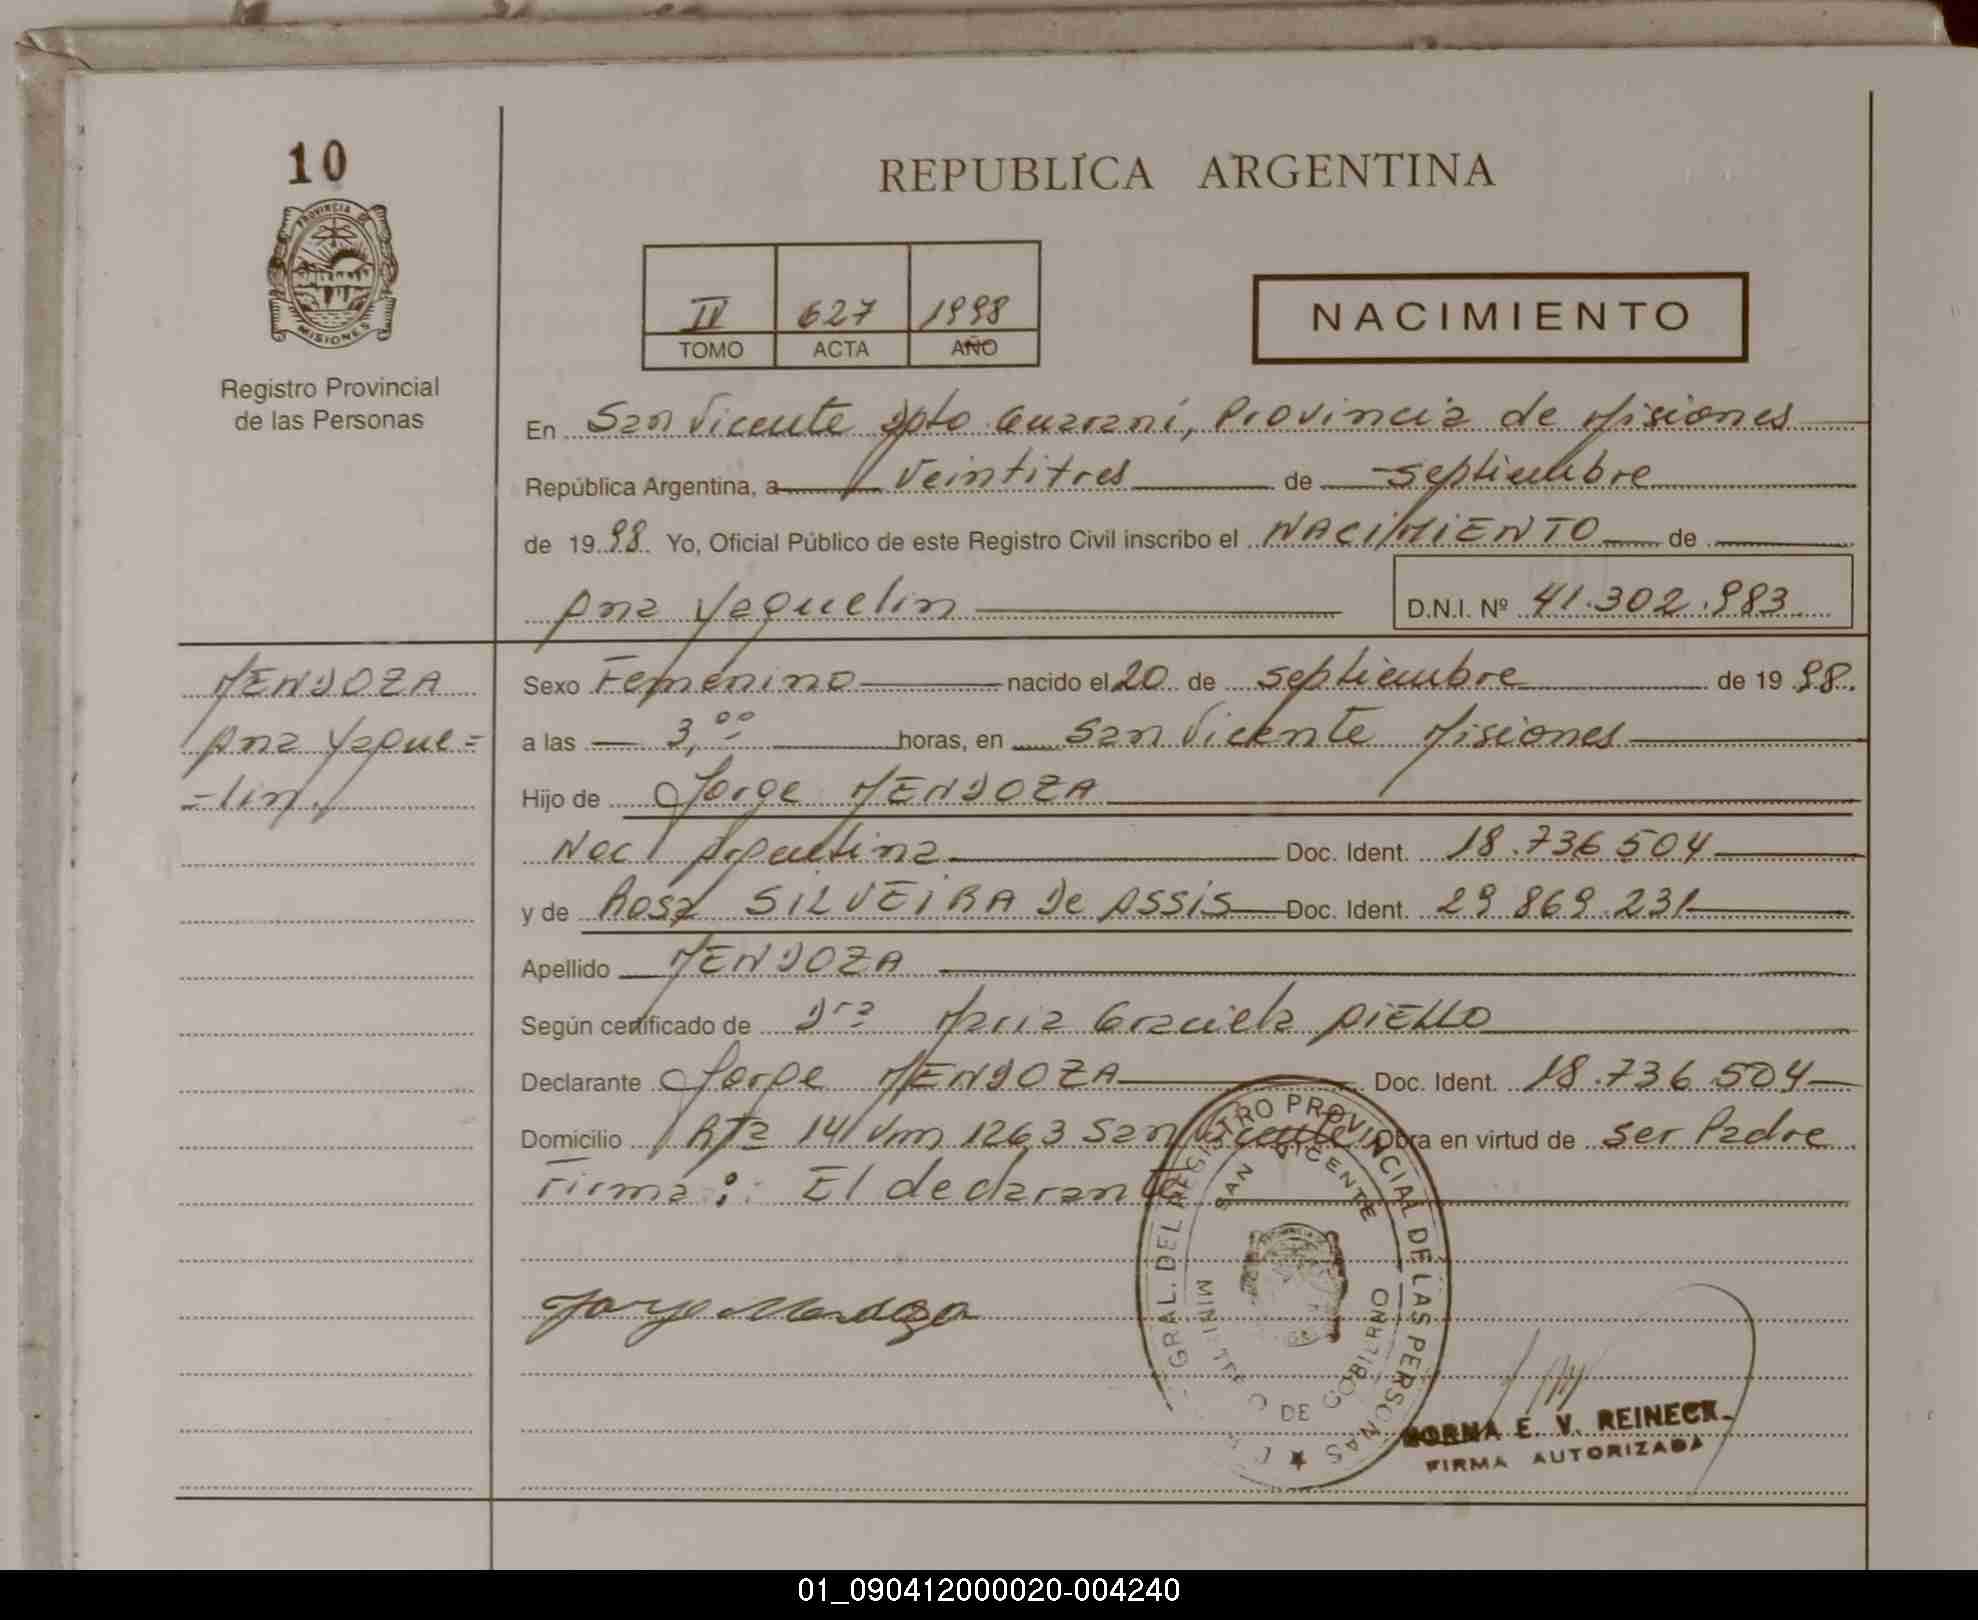 10
PROVINCIA DE
MISIONES
Registro Provincial
de las Personas
REPUBLICA ARGENTINA
IV 627 1998
TOMO ACTA AÑO
NACIMIENTO
En San Vicente Dpto Guaraní, Provincia de Misiones
República Argentina, a Veintitres de septiembre
de 1998. Yo, Oficial Público de este Registro Civil inscribo el NACIMIENTO de
Ana Yaquelin D.N.I. Nº 41.302.983
MENDOZA
Ana Yaque=
=lin,
Sexo Femenino nacido el 20 de septiembre de 1998.
a las 3,00 horas, en San Vicente Misiones
Hijo de Jorge MENDOZA
Nac Argentina Doc. Ident. 18.736.504
y de Rosa SILVEIRA De ASSIS Doc. Ident. 29.869.231
Apellido MENDOZA
Según certificado de Dra Maria Graciela
Declarante Jorge MENDOZA Doc. Ident. 18.736.504
Domicilio Rta 14 Km 1263 San Vicente Obra en virtud de ser Padre
Firma: El declarante
Jorge Mendoza
GRAL. DEL REGISTRO PROVINCIAL DE LAS PERSONAS
SAN VICENTE
DE GOBIERNO
NORMA E. V. REINECK
FIRMA AUTORIZADA
01_090412000020-004240